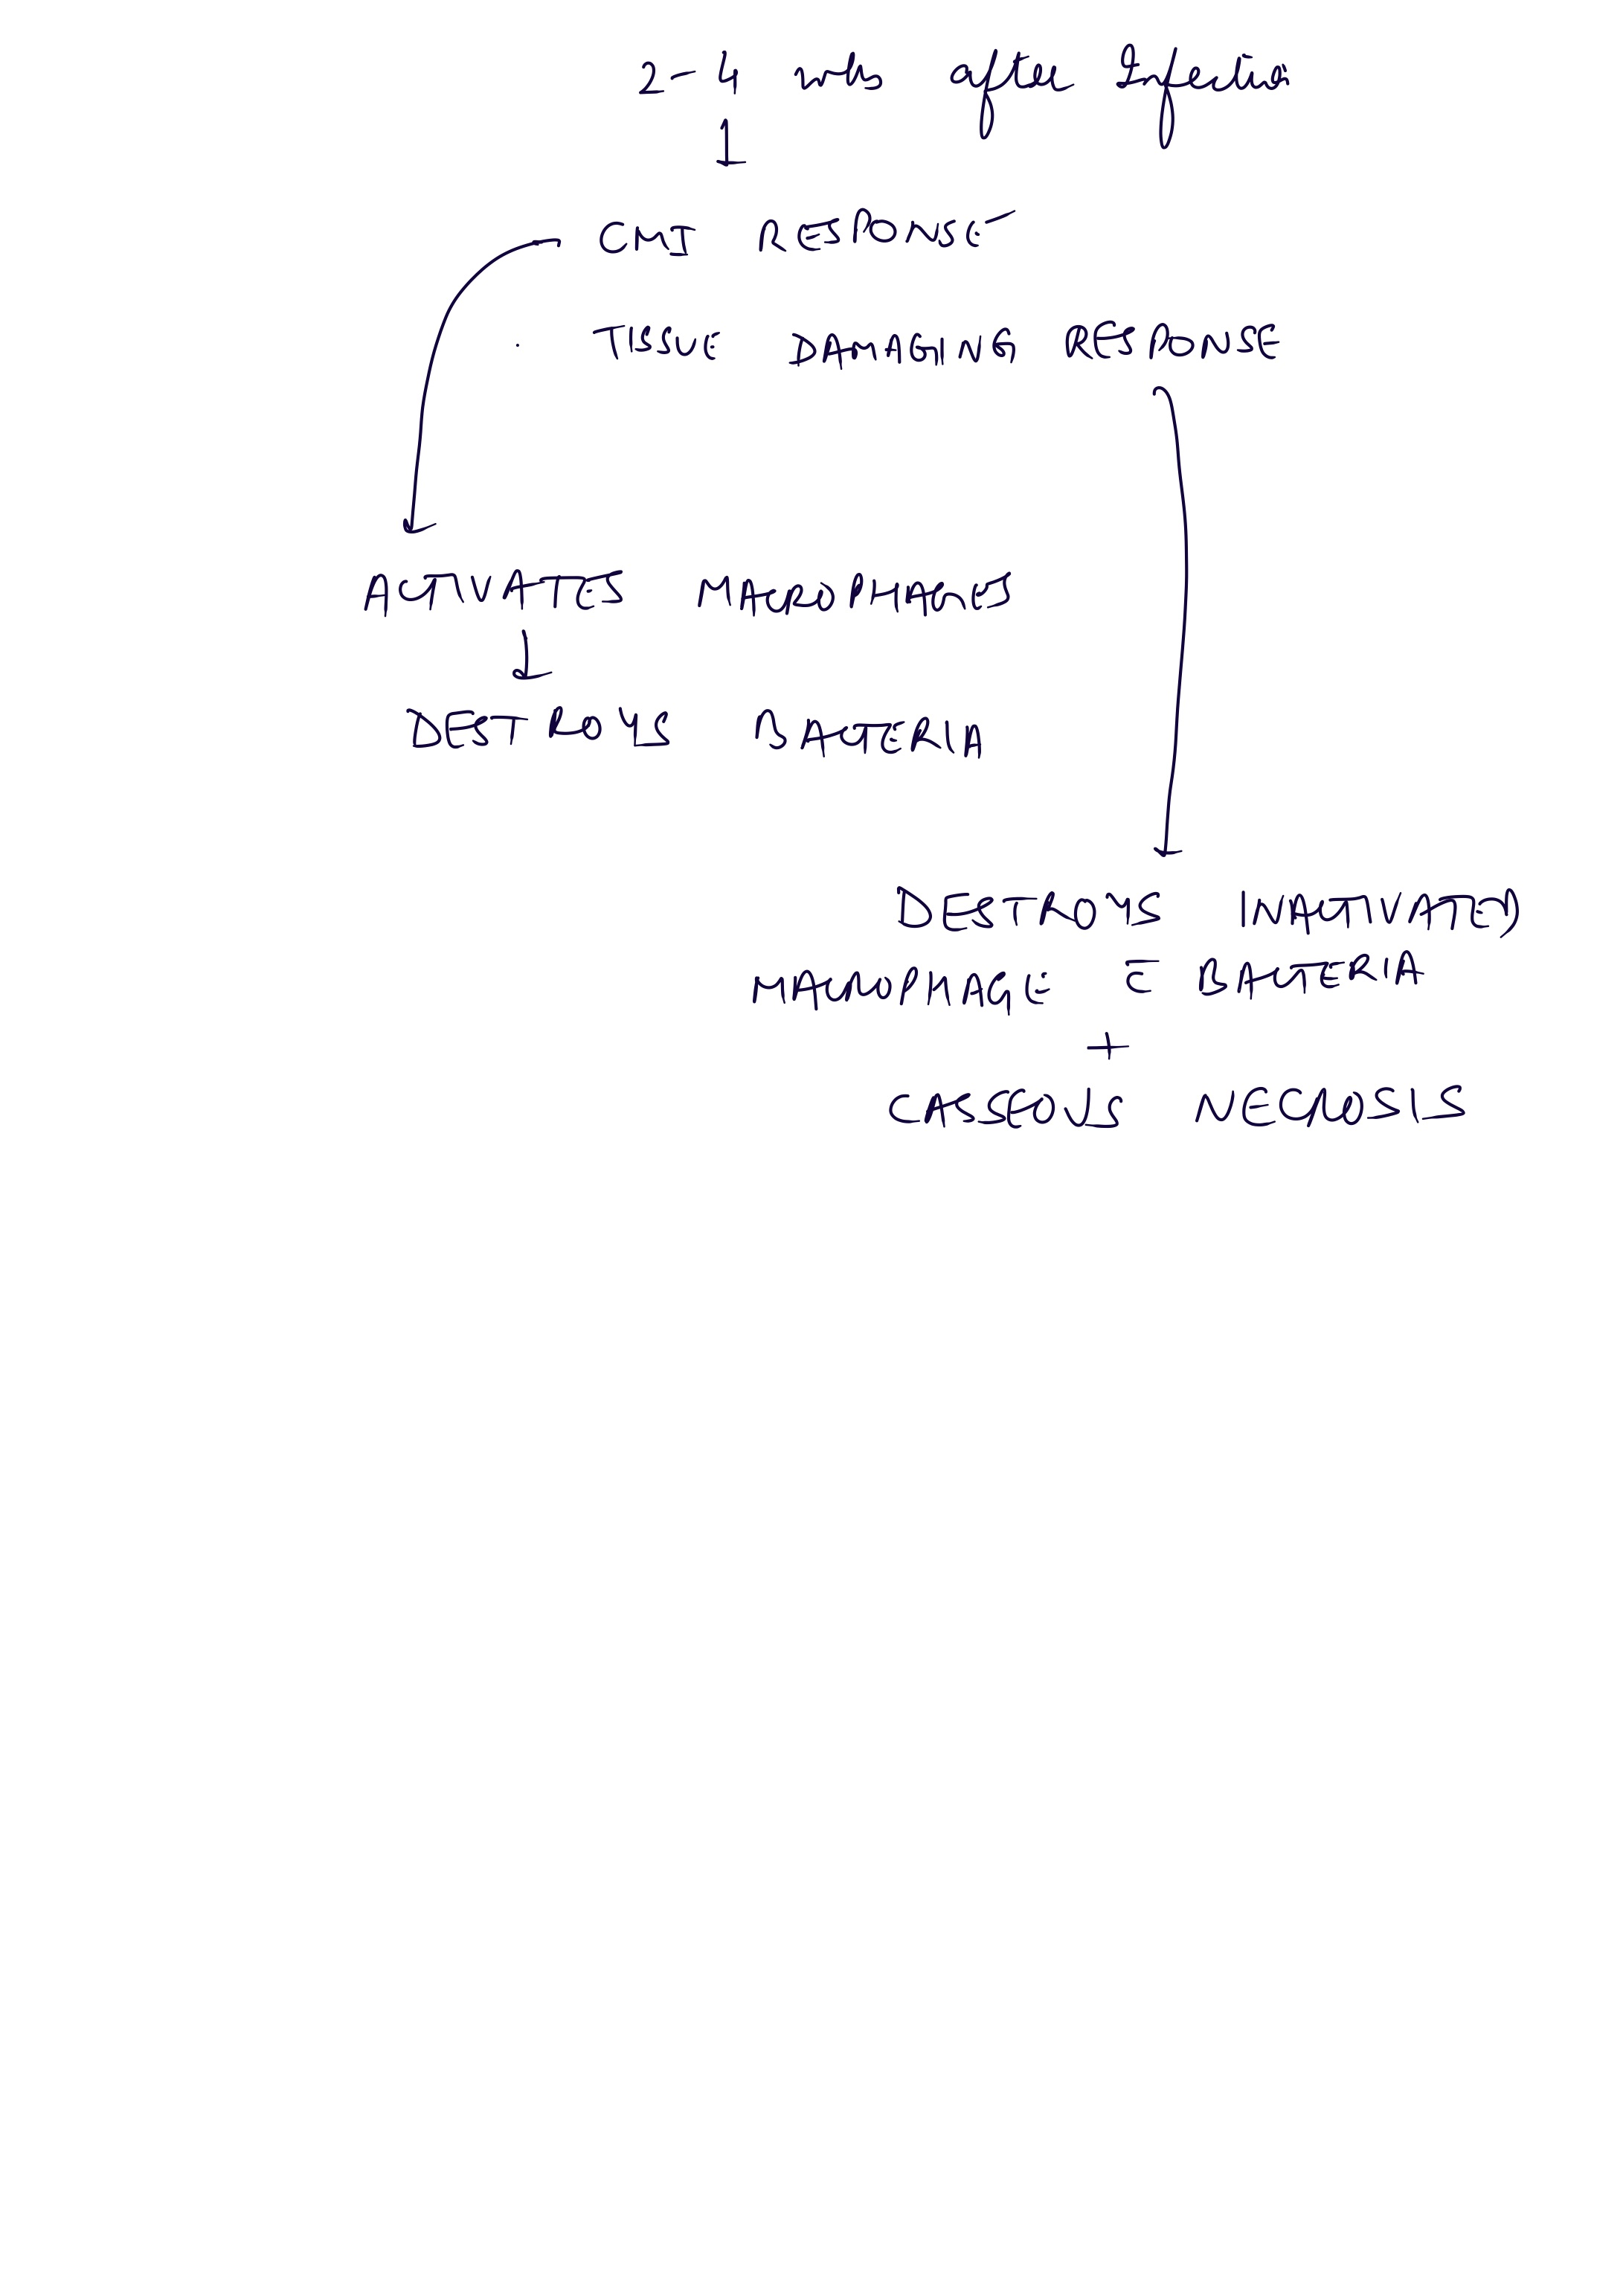 2-4 wks after Infection
CMI RESPONSE
TISSUE DAMAGING RESPONSE
ACTIVATES MACROPHAGES
DESTROYS BACTERIA
DESTROYS INACTIVATED
MACROPHAGE c̄ BACTERIA
+
CASSEOUS NECROSIS